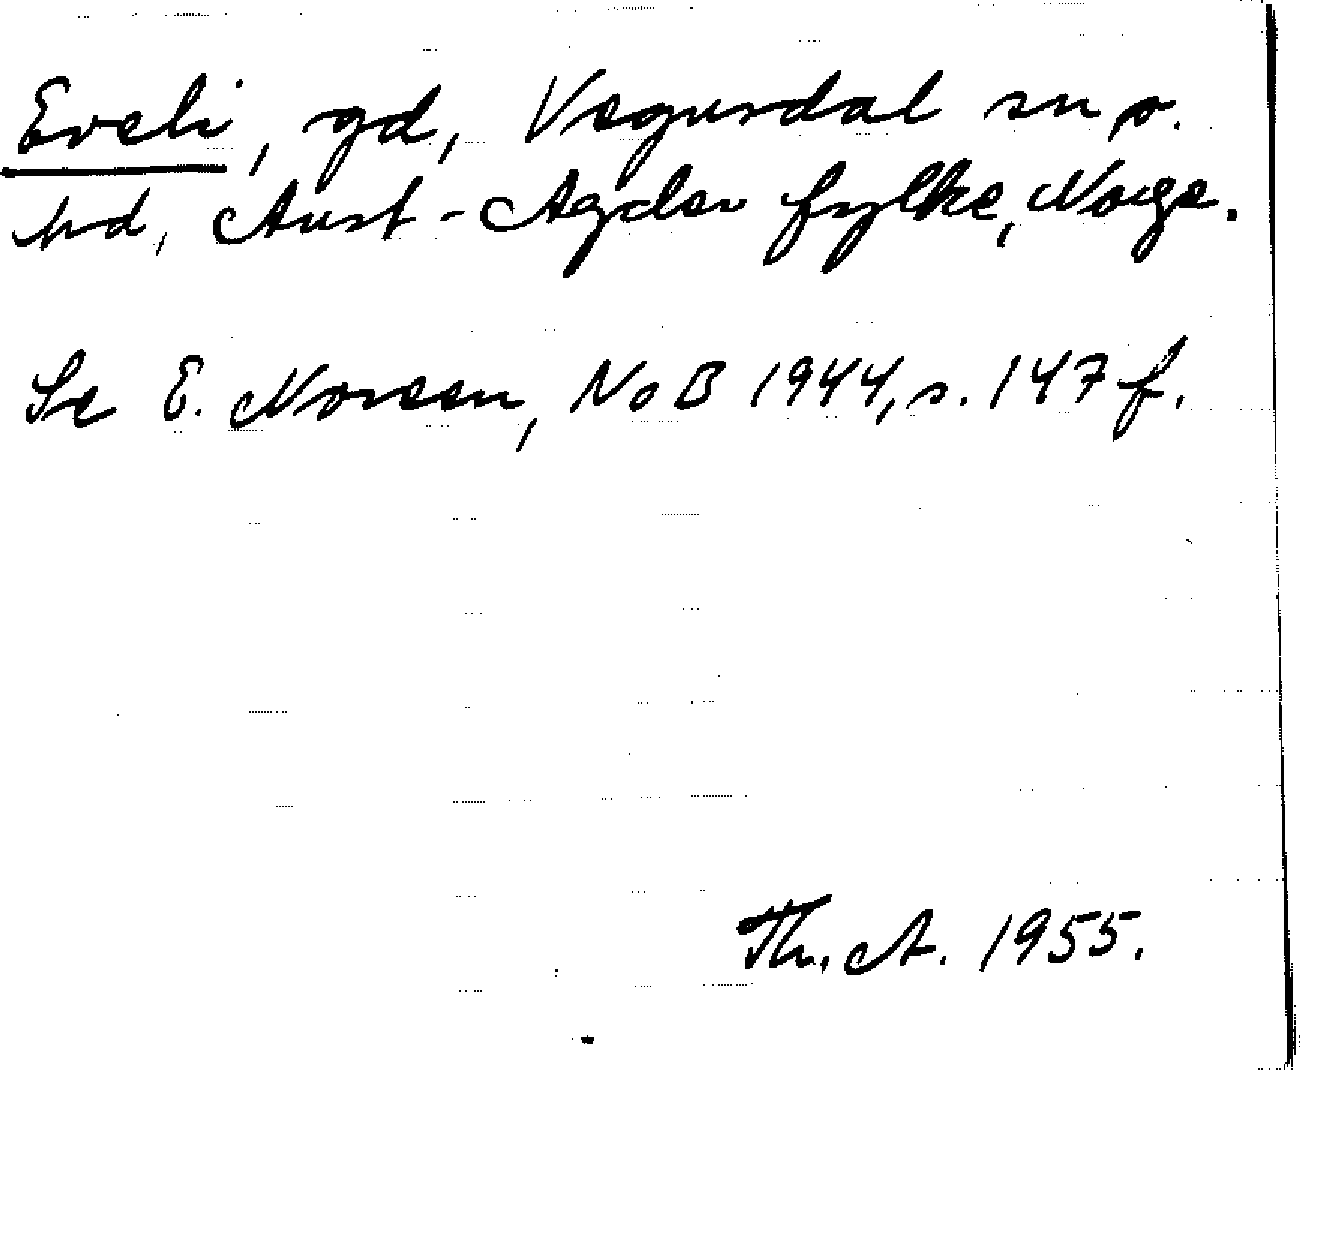 Eveli, gd, Vegusdal sn o.
hd, Aust-Agder fylke, Norge.
Se E. Noreen, NoB 1944, s. 147 f.
Th. A. 1955.